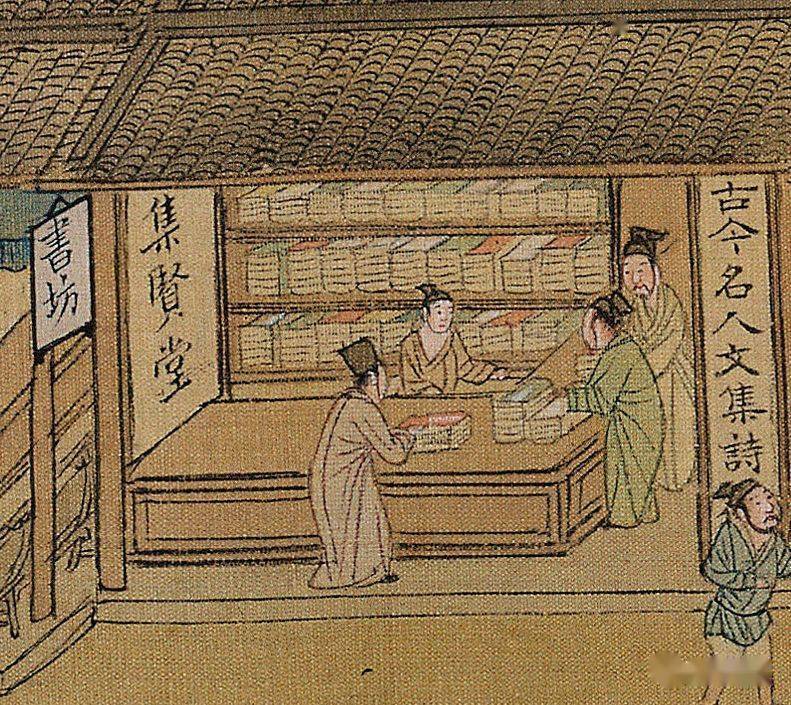 書坊
集賢堂
古今名人文集詩